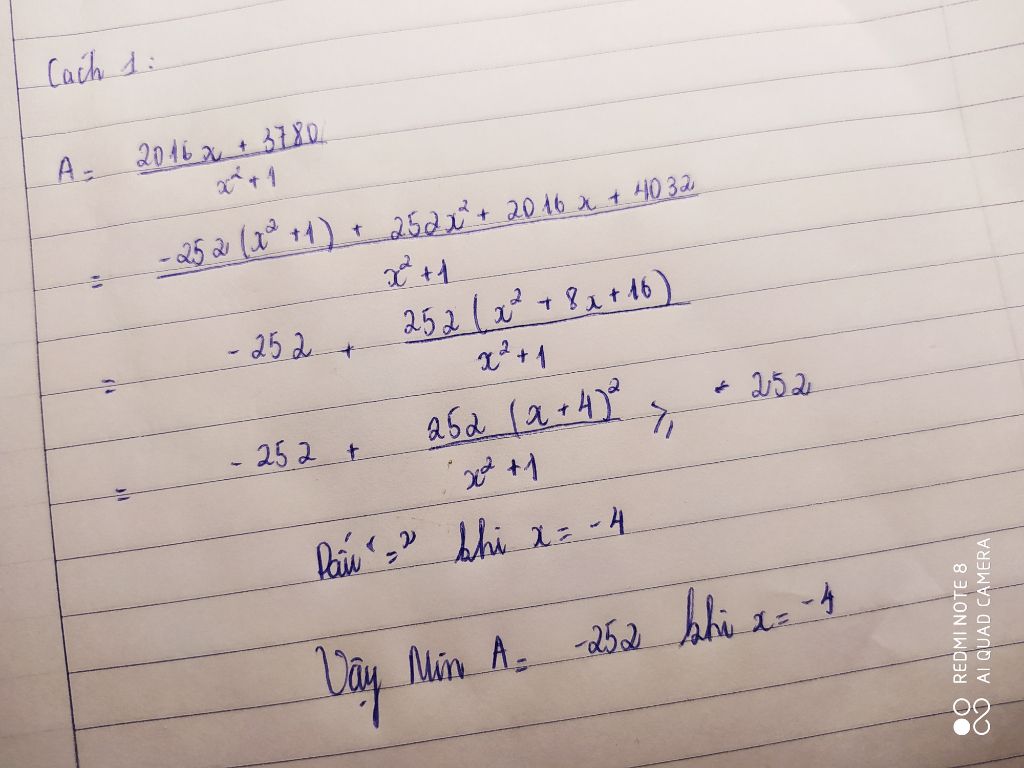 Cách 1:
A = \frac{2016x + 3780}{x² + 1}
= \frac{-252(x² + 1) + 252x² + 2016x + 4032}{x² + 1}
= -252 + \frac{252(x² + 8x + 16)}{x² + 1}
= -252 + \frac{252(x + 4)²}{x² + 1} ≥ -252
Dấu "=" khi x = -4
Vậy Min A = -252 khi x = -4
REDMI NOTE 8
AI QUAD CAMERA